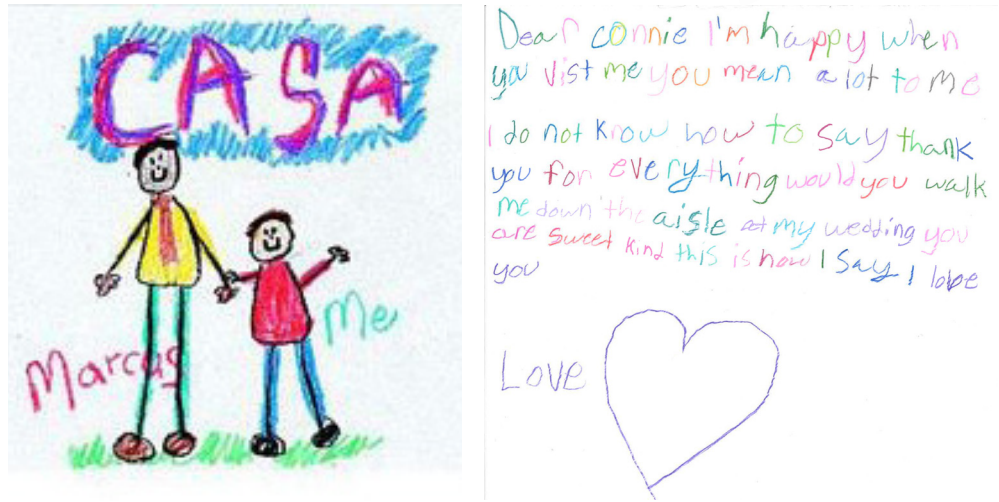 CASA
Marcus
Me
Dear connie I'm happy when
you vist me you mean a lot to me
I do not know how to say thank
you for everything would you walk
me down the aisle at my wedding you
are sweet kind this is how I say I love
you
Love